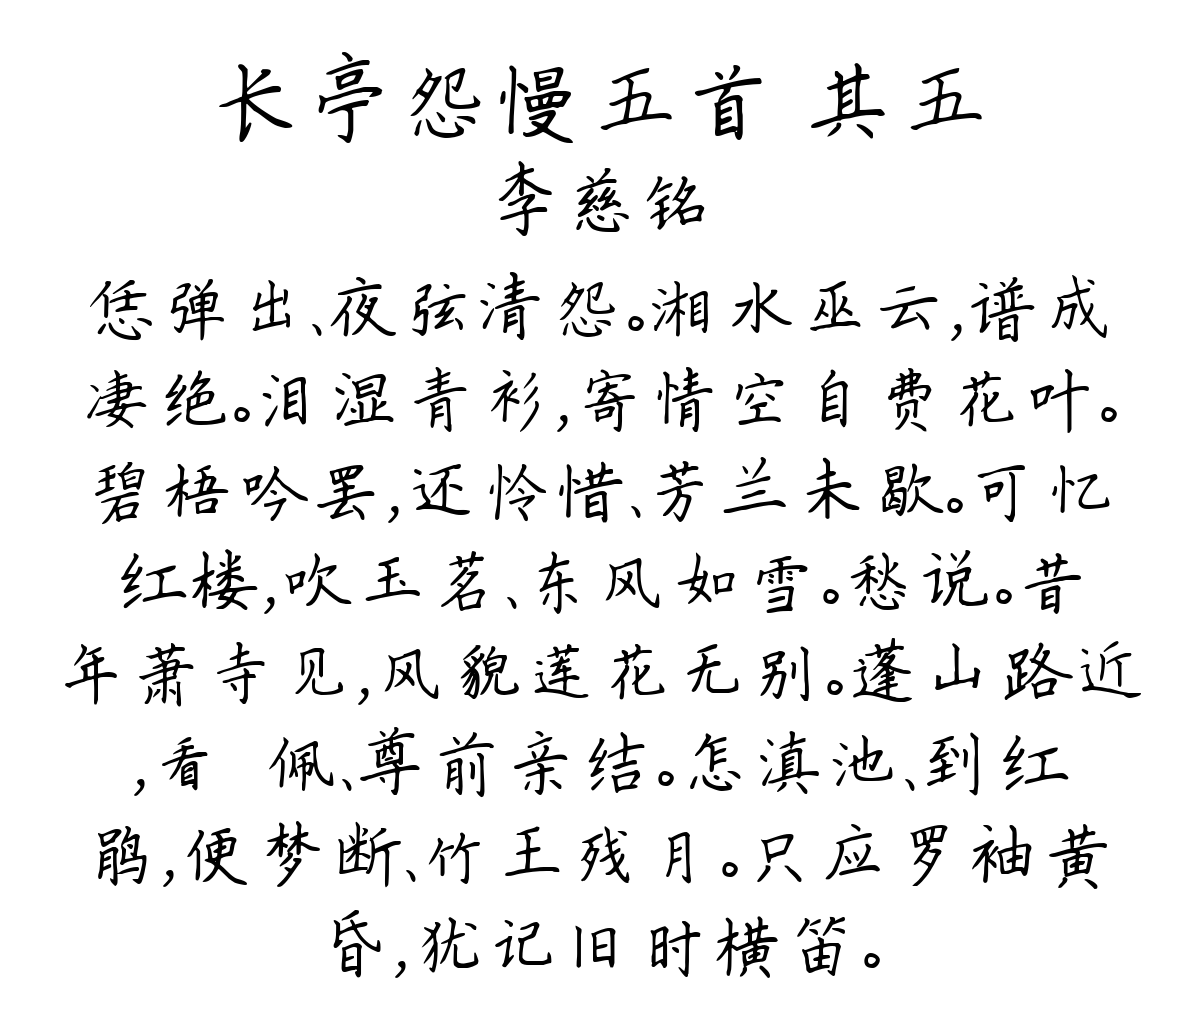 长亭怨慢五首 其五
李慈铭
恁弹出、夜弦清怨。湘水巫云,谱成
凄绝。泪湿青衫,寄情空自费花叶。
碧梧吟罢,还怜惜、芳兰未歇。可忆
红楼,吹玉茗、东风如雪。愁说。昔
年萧寺见,风貌莲花无别。蓬山路近
,看 佩、尊前亲结。怎滇池、到红
鹃,便梦断、竹王残月。只应罗袖黄
昏,犹记旧时横笛。